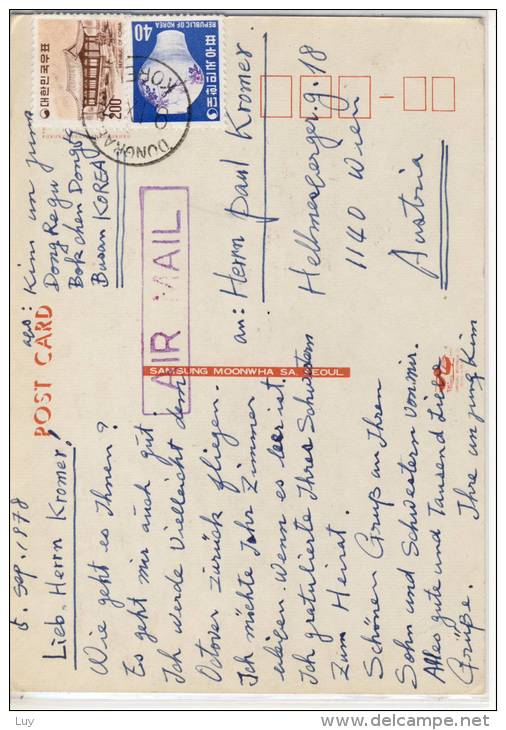 POST CARD
AIR MAIL
SAMSUNG MOONWHA SA. SEOUL
대한민국우표
200
REPUBLIC OF KOREA
대한민국우표
40
REPUBLIC OF KOREA
DONGRAE
KOREA
aus: Kim un jung
Dong Regu
Bok chen Dong
Busan KOREA
an: Herrn Paul Kromer
Hellmesbergerg. 18
1140 Wien
Austria
5. Sep. 1978
Lieb. Herrn Kromer!
Wie geht es Ihnen?
Es geht mir auch gut
Ich werde Vielleicht dem
Octover zurück fligen.
Ich möchte Ihr Zimmer
Wenn es leer ist.
Ich gratulierte Ihres Schwestern
zum Heirat.
Schönen Gruß an Ihren
Sohn und Schwestern von mir.
Alles gute und Tausend Liebe
Grüße.
Ihre un jung Kim
Luy
www.delcampe.net